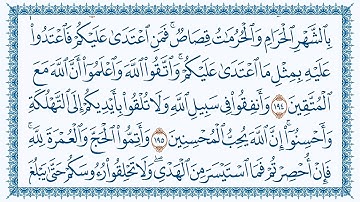 بِٱلشَّهْرِ ٱلْحَرَامِ وَٱلْحُرُمَٰتُ قِصَاصٌ ۚ فَمَنِ ٱعْتَدَىٰ عَلَيْكُمْ فَٱعْتَدُوا۟
عَلَيْهِ بِمِثْلِ مَا ٱعْتَدَىٰ عَلَيْكُمْ ۚ وَٱتَّقُوا۟ ٱللَّهَ وَٱعْلَمُوٓا۟ أَنَّ ٱللَّهَ مَعَ
ٱلْمُتَّقِينَ ١٩٤ وَأَنفِقُوا۟ فِى سَبِيلِ ٱللَّهِ وَلَا تُلْقُوا۟ بِأَيْدِيكُمْ إِلَى ٱلتَّهْلُكَةِ
وَأَحْسِنُوٓا۟ ۛ إِنَّ ٱللَّهَ يُحِبُّ ٱلْمُحْسِنِينَ ١٩٥ وَأَتِمُّوا۟ ٱلْحَجَّ وَٱلْعُمْرَةَ لِلَّهِ ۚ
فَإِنْ أُحْصِرْتُمْ فَمَا ٱسْتَيْسَرَ مِنَ ٱلْهَدْىِ ۖ وَلَا تَحْلِقُوا۟ رُءُوسَكُمْ حَتَّىٰ يَبْلُغَ